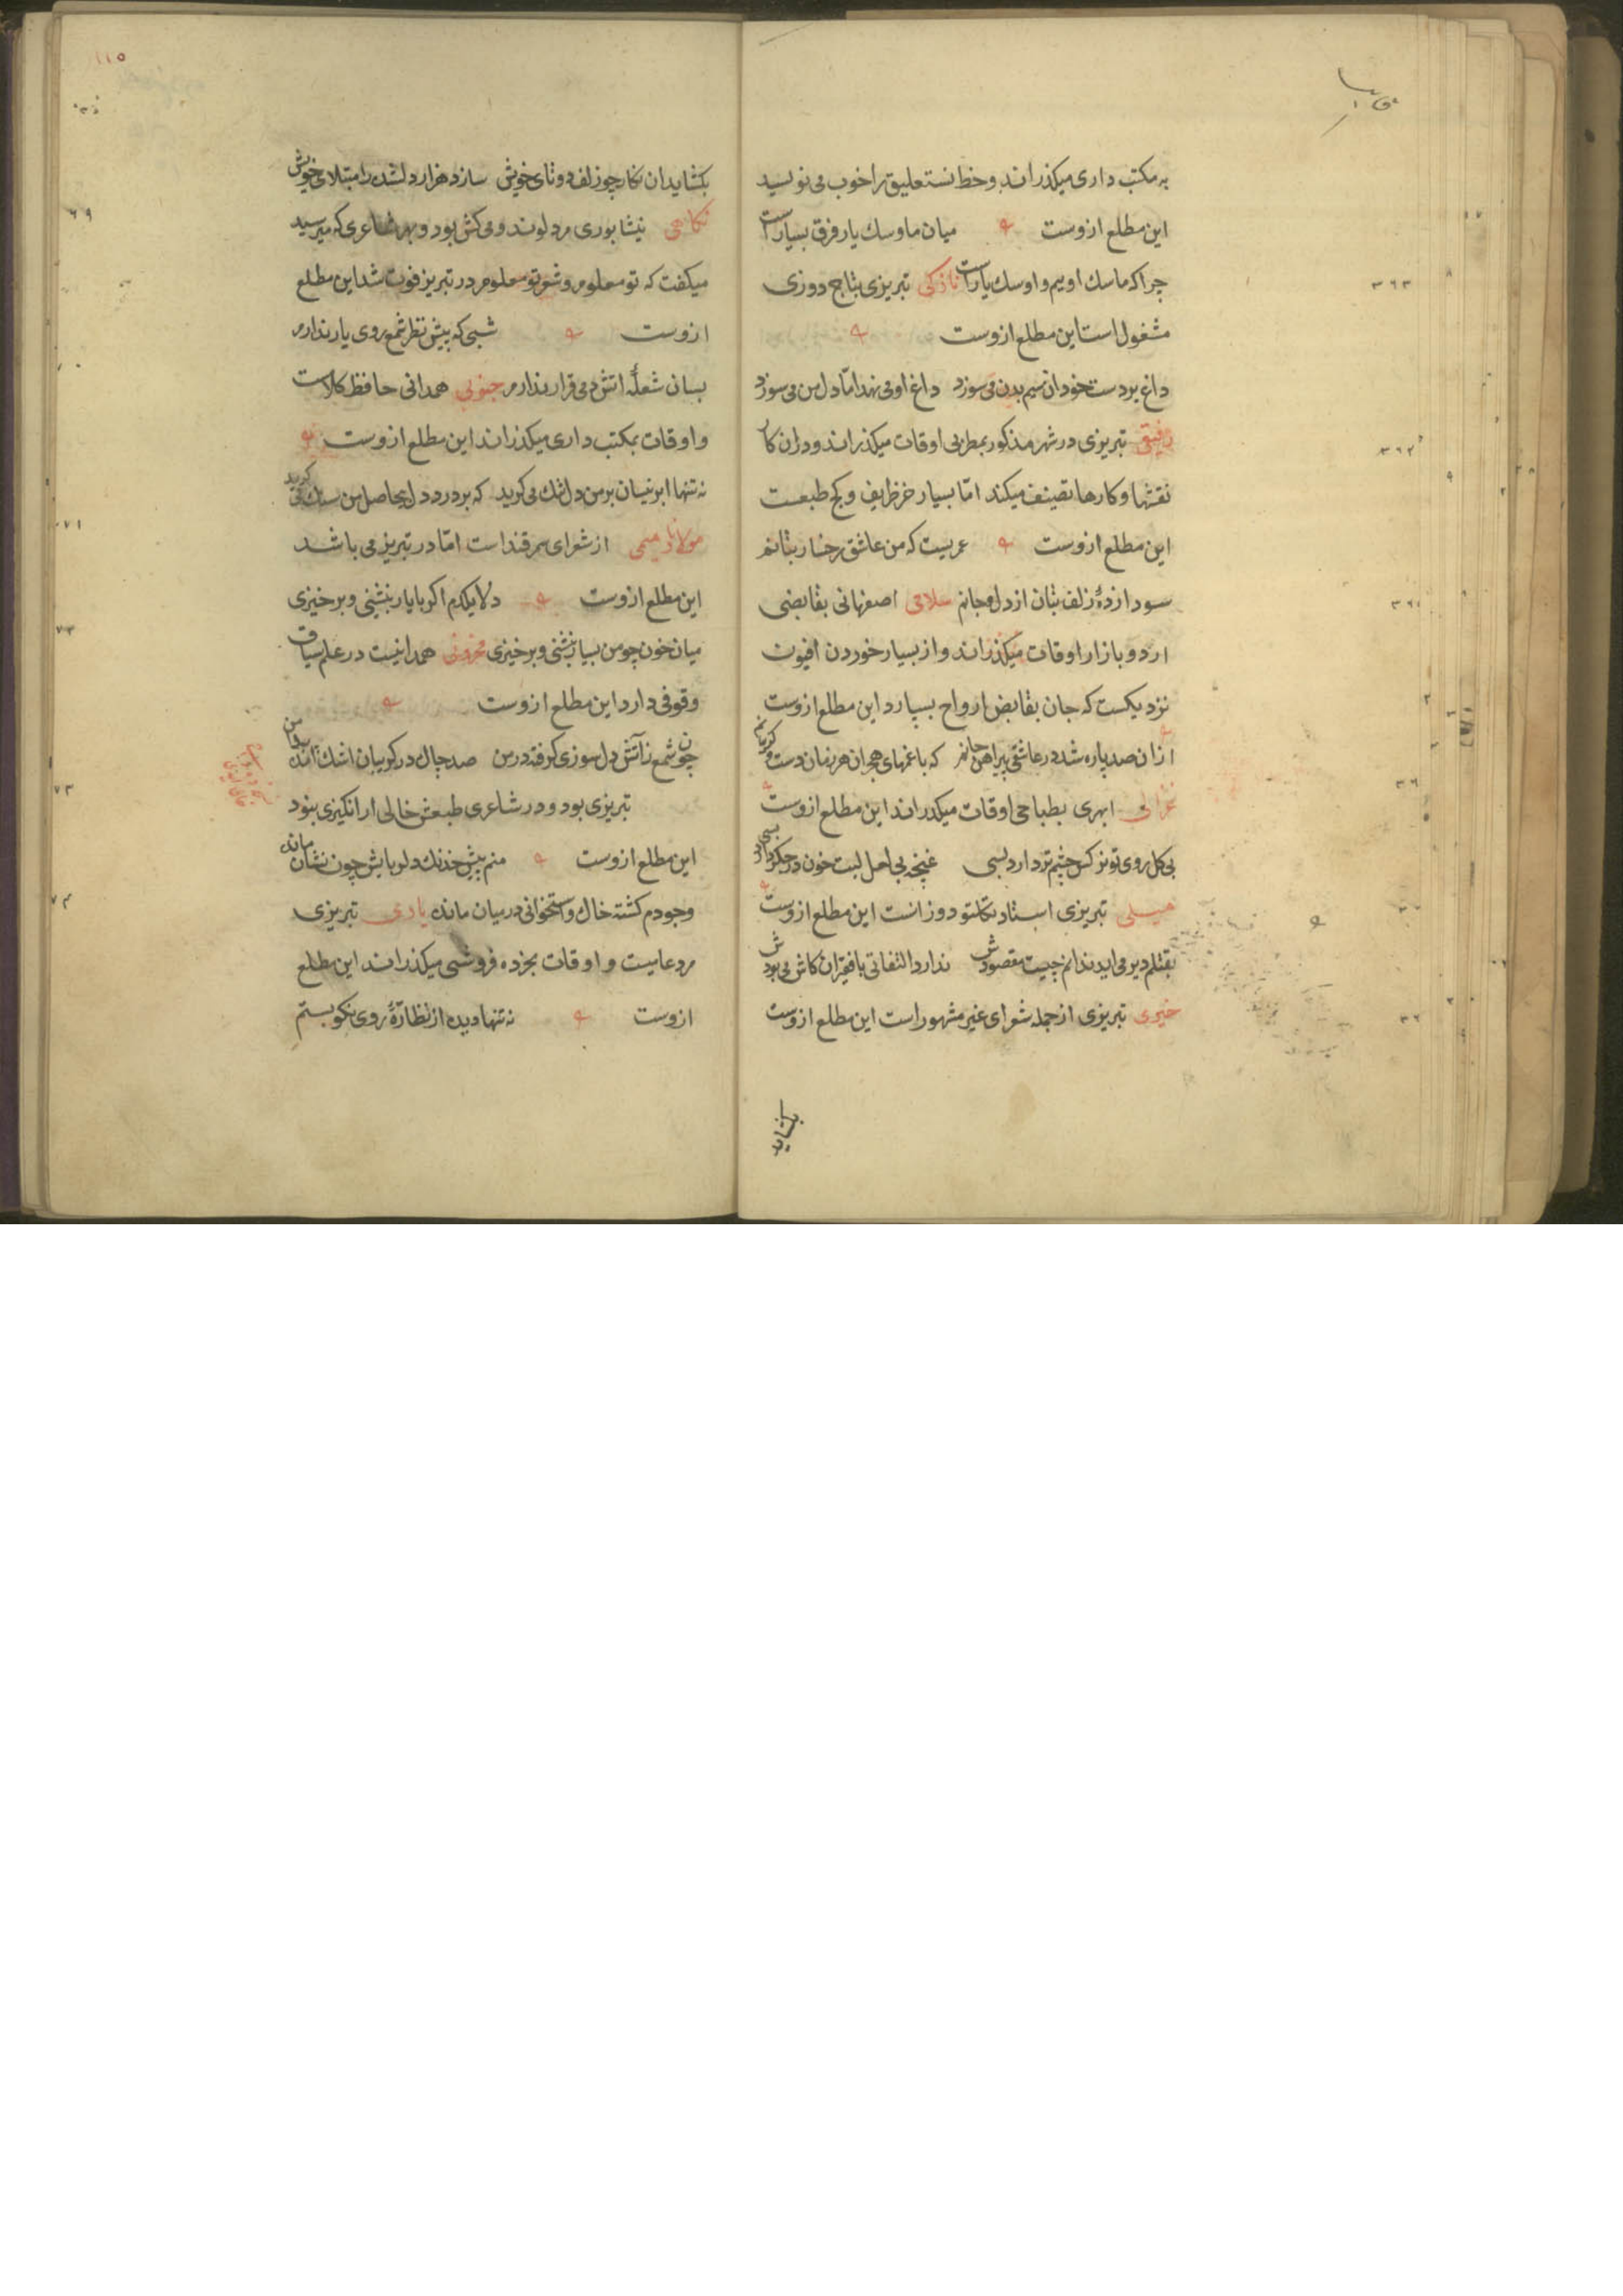 به مکتب داری میکذراند وخط نستعلیق را خوب می نویسد
این مطلع ازوست میان ما وسك یار فرق بسیارست
چرا که ما سك اوییم و او سك یارست نازکی تبریزی بتاج دوزی
مشغول است این مطلع ازوست
داغ بر دست خود ان سیم بدن می سوزد داغ او می نهد امّا دل من می سوزد
رفیقی تبریزی در شهر مذکور بمطربی اوقات میکذراند و دران کار
نقشها و کارها تصنیف میکند امّا بسیار خر ظریف و کج طبعست
این مطلع ازوست عمریست که من عاشق رخسار بتانم
سودا زدۀ زلف بتان از دل و جانم سلامی اصفهانی بقابضی
اردو بازار اوقات میکذراند و از بسیار خوردن افیون
نزدیکست که جان بقابض ارواح بسپارد این مطلع ازوست
ازان صد پاره شد در عاشقی پیراهن جانم که با غمهای هجران هر زمان دست و کریبانم
غزالی ابهری بطباخی اوقات میکذراند این مطلع ازوست
بی کل روی تو نرکس چشم تر دارد بسی غنچه بی لعل لبت خون در جکر دارد بسی
میلی تبریزی استاد تکلتو دوزانست این مطلع ازوست
بقتلم دیر می اید ندانم چیست مقصودش ندارد التفاتی با فقیران کاش می بودش
خیری تبریزی از جمله شعرای غیر مشهور است این مطلع ازوست
بکشاید
١١٥
بکشاید ان نکار چو زلف دوتای خویش سازد هزار دلشده را مبتلای خویش
نکاهی نیشابوری مرد لوند و می کش بود و بهر شاعری که میرسید
میکفت که تو معلوم و شعر تو معلوم در تبریز فوت شد این مطلع
ازوست شبی که پیش نظر شمع روی یار ندارم
بسان شعلۀ اتش دمی قرار ندارم جنوبی همدانی حافظ کلاست
و اوقات بمکتب داری میکذراند این مطلع ازوست
نه تنها ابر نیسان بر من دل تنك می کرید که بر درد دل بیحاصل من سنك می کرید
مولانا میمی از شعرای سمرقند است امّا در تبریز می باشد
این مطلع ازوست دلا یکدم اکر با یار بنشینی و بر خیزی
میان خون چو من بسیار بنشنی و بر خیزی محزونی همدانیست در علم سیاق
وقوفی دارد این مطلع ازوست
چون شمع زآتش دل سوزی کرفته در من صد چاك در کریبان اشك آمده بدامن
تبریزی بود و در شاعری طبعش خالی از انکیزی نبود
این مطلع ازوست منم پیش خدنك دلربایش چون نشان مانده
وجودم کشته خاك و استخوانی در میان مانده یاری تبریزی
مرد عامیست و اوقات بخرده فروشی میکذراند این مطلع
ازوست نه تنها دیده از نظارۀ روی نکو بستم